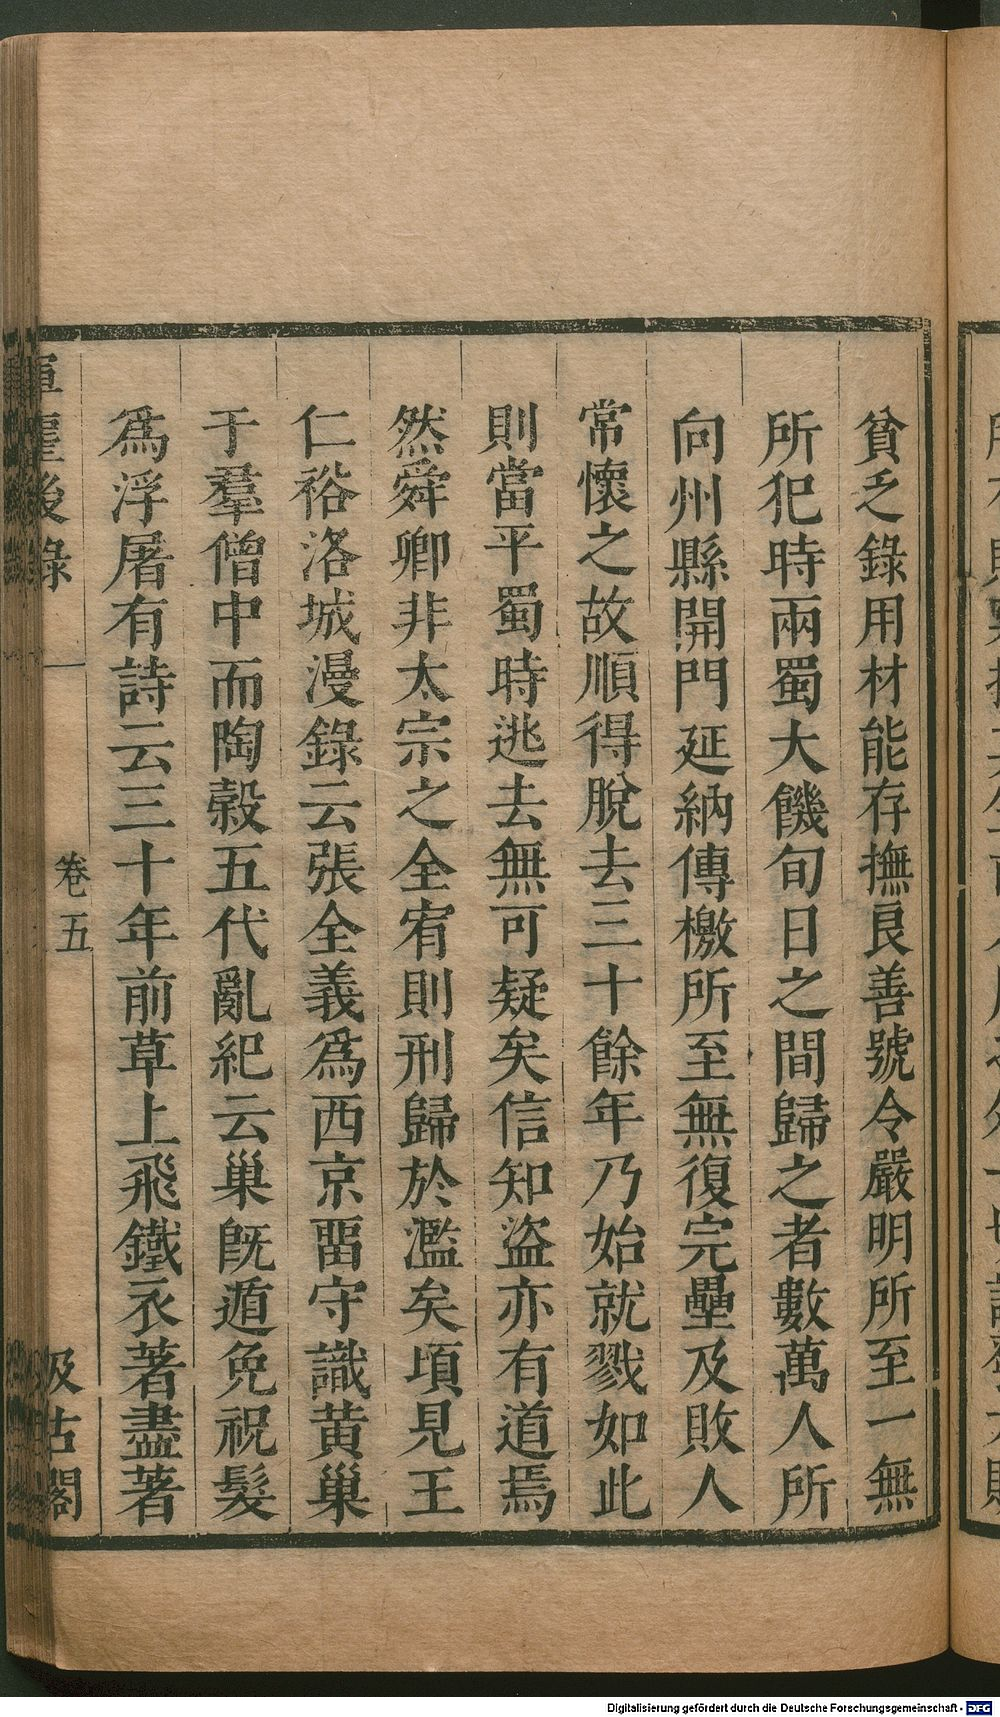 貧乏錄用材能存撫良善號令嚴明所至一無
所犯時兩蜀大饑旬日之間歸之者數萬人所
向州縣開門延納傳檄所至無復完壘及敗人
常懷之故順得脫去三十餘年乃始就戮如此
則當平蜀時逃去無可疑矣信知盜亦有道焉
然舜卿非太宗之全宥則刑歸於濫矣頃見王
仁裕洛城漫錄云張全義爲西京畱守識黃巢
于羣僧中而陶穀五代亂紀云巢旣遁免祝髮
爲浮屠有詩云三十年前草上飛鐵衣著盡著
後錄
卷五
汲古閣
Digitalisierung gefördert durch die Deutsche Forschungsgemeinschaft - DFG